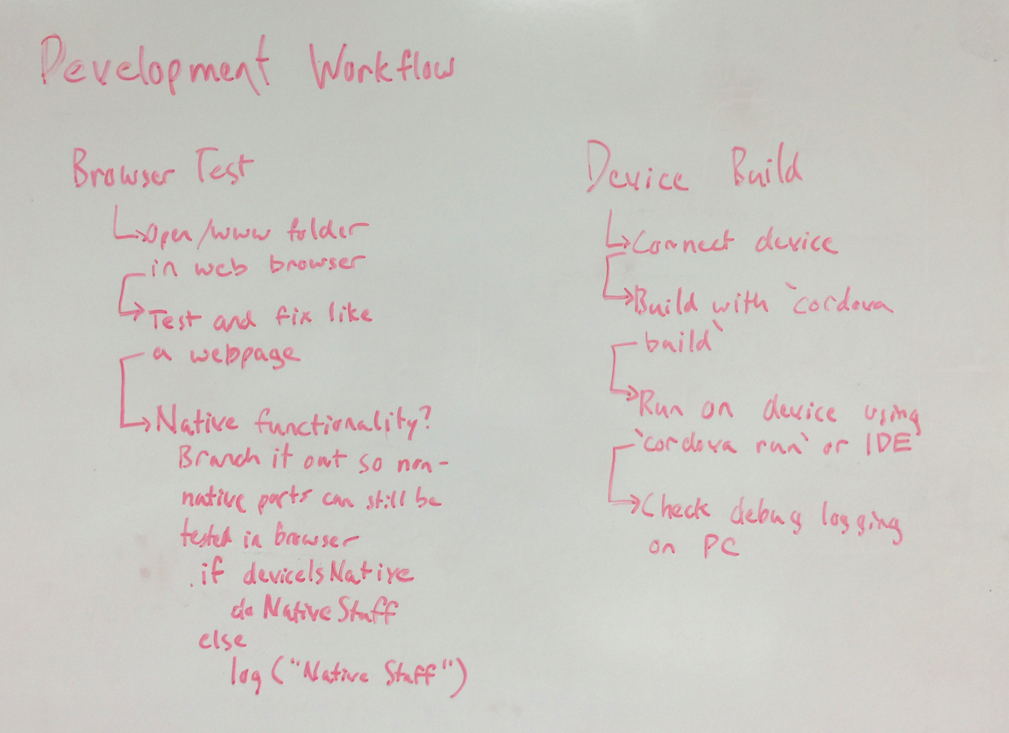 Development Workflow
Browser Test
Open /www folder
in web browser
Test and fix like
a webpage
Native functionality?
Branch it out so non-
native parts can still be
tested in browser
if deviceIsNative
do NativeStuff
else
log ("Native Stuff")
Device Build
Connect device
Build with `cordova
build`
Run on device using
`cordova run` or IDE
Check debug logging
on PC